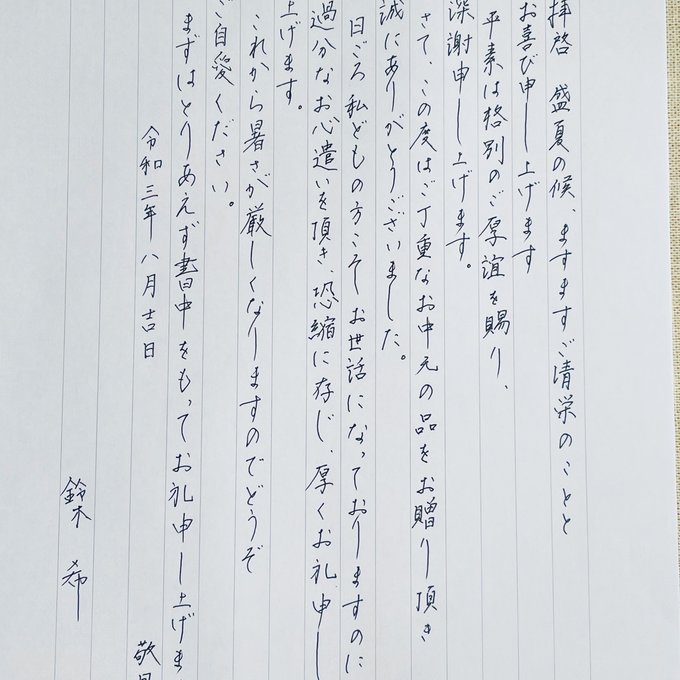 拝啓　盛夏の候、ますますご清栄のことと
お喜び申し上げます
平素は格別のご厚誼を賜り、
深謝申し上げます。
さて、この度はご丁重なお中元の品をお贈り頂き
誠にありがとうございました。
日ごろ私どもの方こそお世話になっておりますのに
過分なお心遣いを頂き、恐縮に存じ、厚くお礼申し
上げます。
これから暑さが厳しくなりますのでどうぞ
ご自愛ください。
まずはとりあえず書中をもってお礼申し上げま
敬
令和三年八月吉日
鈴木　希